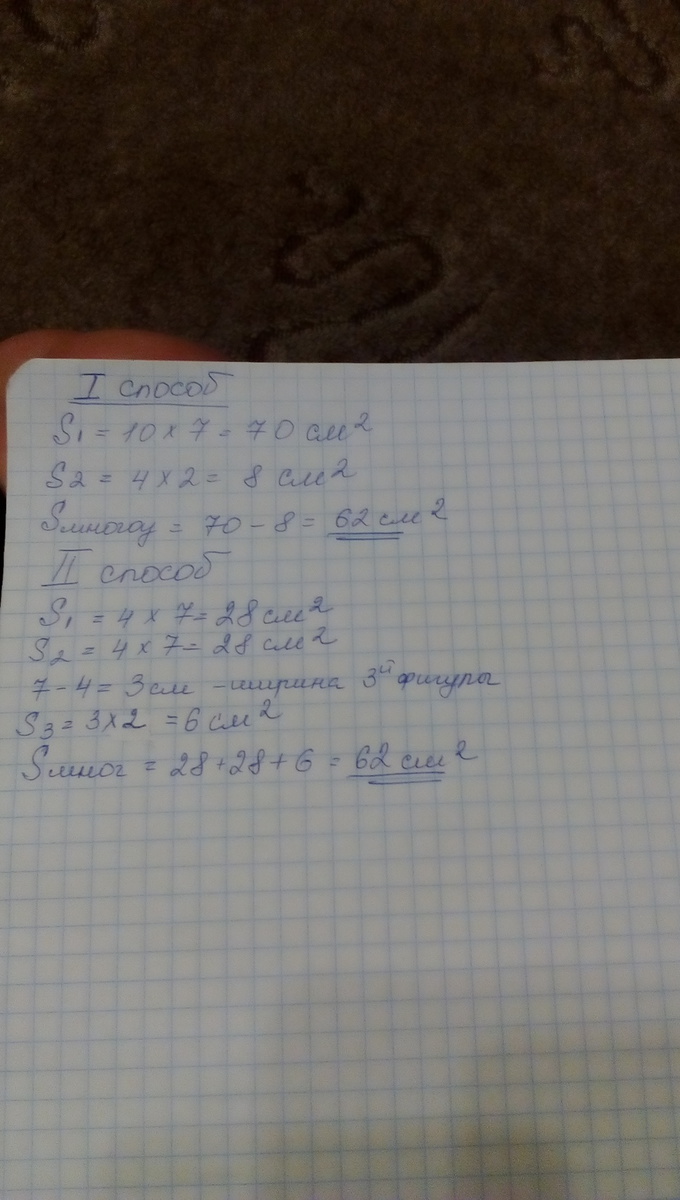 I способ
S1 = 10 × 7 = 70 см²
S2 = 4 × 2 = 8 см²
Sмногоу = 70 - 8 = 62 см²
II способ
S1 = 4 × 7 = 28 см²
S2 = 4 × 7 = 28 см²
7 - 4 = 3 см - ширина 3й фигуры
S3 = 3 × 2 = 6 см²
Sмног = 28 + 28 + 6 = 62 см²